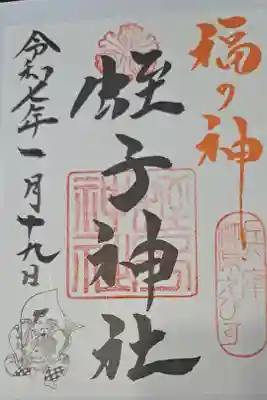 福の神
蛭子神社
令和七年一月十九日